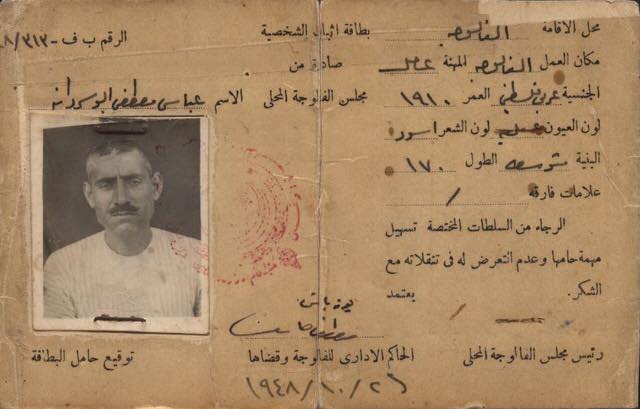 محل الاقامة الفالوجه
مكان العمل الفالوجه المهنة عامل
الجنسية عربي فلسطيني العمر ١٩١٠
لون العيون عسليه لون الشعر اسود
البنية متوسطه الطول ١٧٠
علامات فارقة /
الرجاء من السلطات المختصة تسهيل
مهمة حاملها وعدم التعرض له فى تنقلاته مع
الشكر. يعتمد
رئيس مجلس الفالوجة المحلى
بطاقة اثبات الشخصية
الرقم ب ف - ٣١٣/
صادرة من
مجلس الفالوجة المحلى
الاسم عباس مصطفى ابو سردانه
يوزباشى
الحاكم الادارى للفالوجة وقضاها
توقيع حامل البطاقة
١٩٤٨/١٠/٢٦